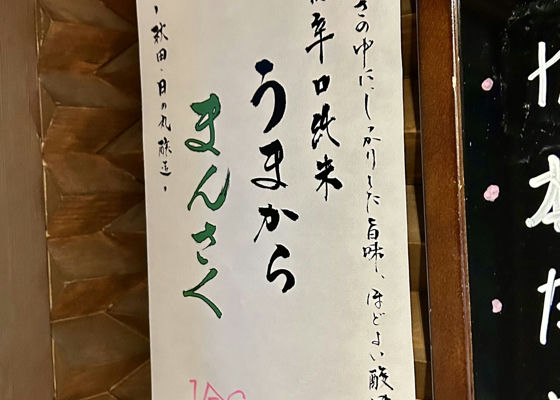 さの中にしっかりした旨味、ほどよい酸
辛口純米
うまから
まんさく
秋田・日の丸醸造